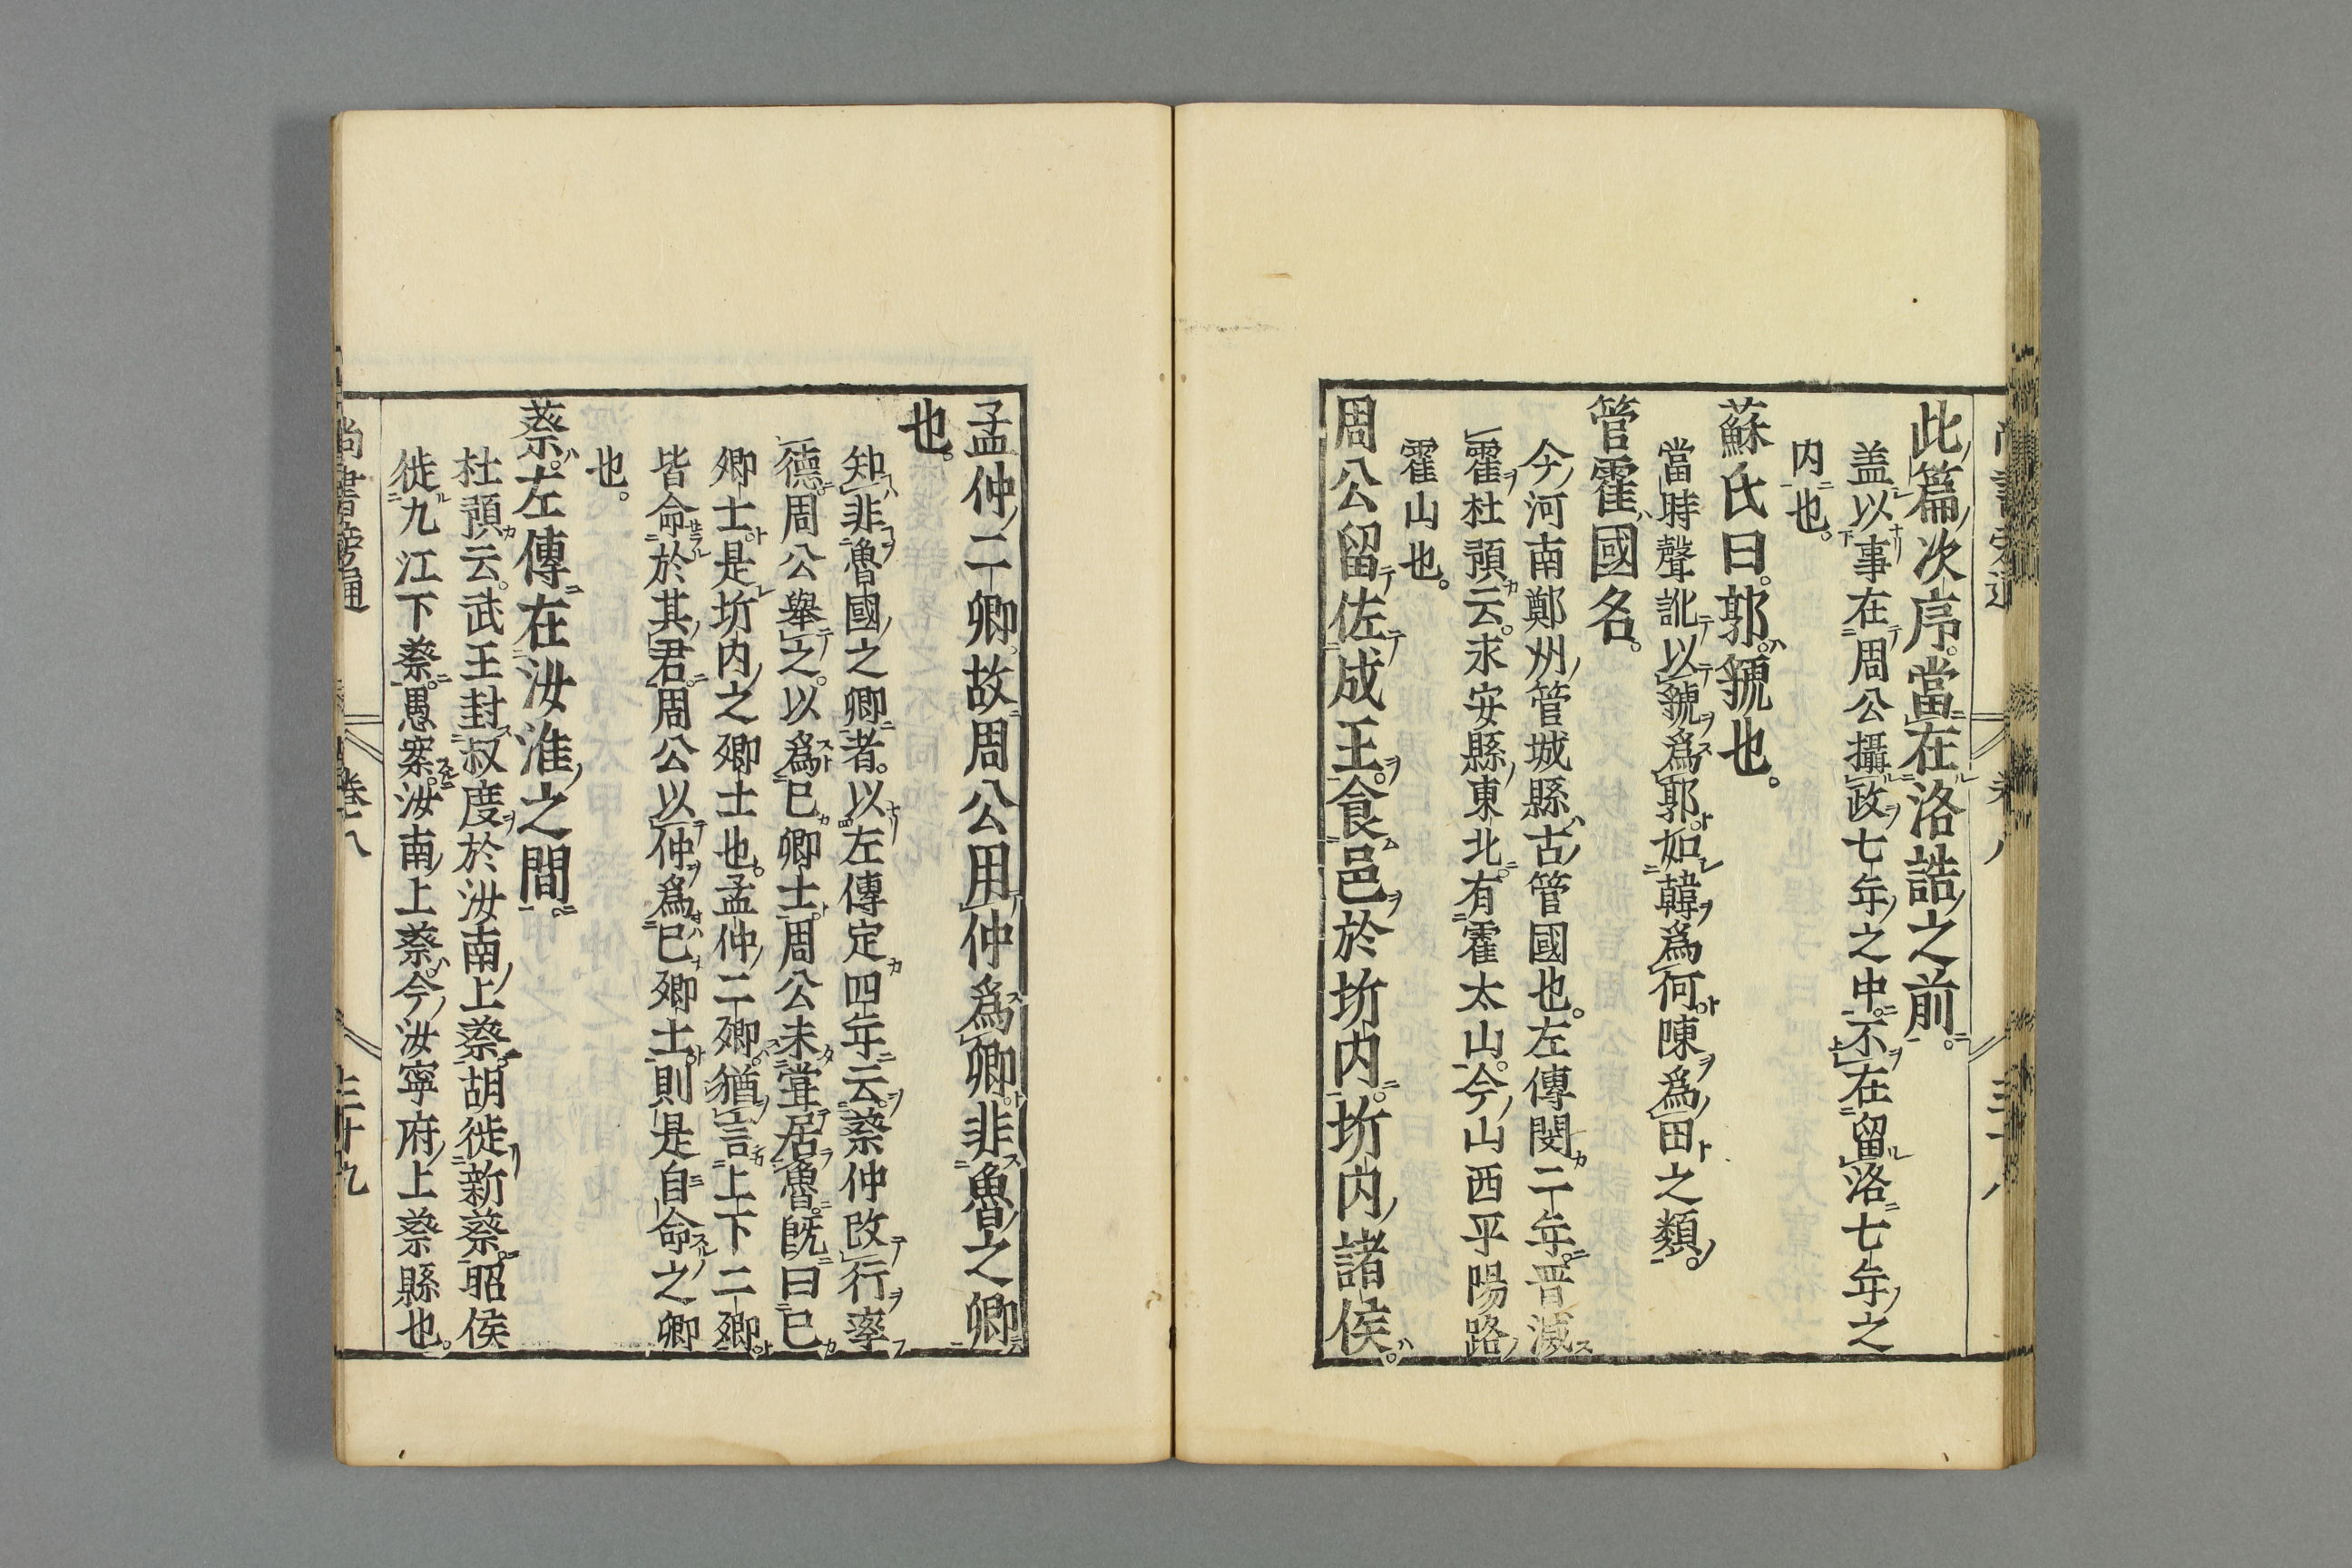 此篇次序當在洛誥之前。
盖以事在周公攝政七年之中。不在留洛七年之
内也。
蘇氏曰。郭。虢也。
當時聲訛以虢爲郭。如韓爲何。陳爲田之類。
管霍國名。
今河南鄭州管城縣古管國也。左傳閔二年。晋滅
霍杜預云。永安縣東北。有霍太山。今山西平陽路
霍山也。
周公留佐成王。食邑於圻内。圻内諸侯。
孟仲二卿故周公用仲爲卿。非魯之卿
也。
知非魯國之卿者。以左傳定四年云。蔡仲改行率
德。周公舉之。以爲已卿士。周公未甞居魯。旣曰已
卿士。是圻内之卿士也。孟仲二卿。猶言上下二卿。
皆命於其君。周公以仲爲已卿士。則是自命之卿
也。
蔡。左傳在汝淮之間。
杜預云。武王封叔度於汝南上蔡。胡徙新蔡。昭侯
徙九江下蔡。愚案。汝南上蔡。今汝寧府上蔡縣也。
尚書旁通
卷八
三十九